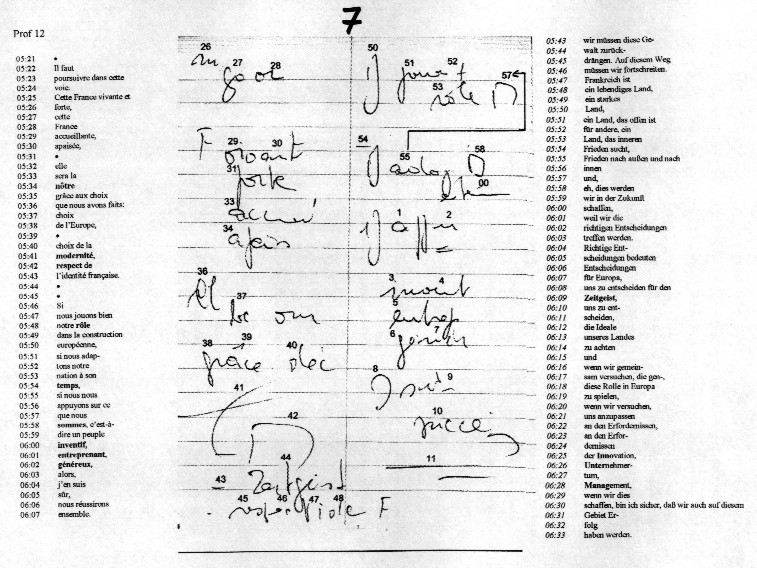 7
Prof 12
05:21 •
05:22 Il faut
05:23 poursuivre dans cette
05:24 voie.
05:25 Cette France vivante et
05:26 forte,
05:27 cette
05:28 France
05:29 accueillante,
05:30 apaisée,
05:31 •
05:32 elle
05:33 sera la
05:34 nôtre
05:35 grâce aux choix
05:36 que nous avons faits:
05:37 choix
05:38 de l'Europe,
05:39 •
05:40 choix de la
05:41 modernité,
05:42 respect de
05:43 l'identité française.
05:44 •
05:45 •
05:46 Si
05:47 nous jouons bien
05:48 notre rôle
05:49 dans la construction
05:50 européenne,
05:51 si nous adap-
05:52 tons notre
05:53 nation à son
05:54 temps,
05:55 si nous nous
05:56 appuyons sur ce
05:57 que nous
05:58 sommes, c'est-à-
05:59 dire un peuple
06:00 inventif,
06:01 entreprenant,
06:02 généreux,
06:03 alors,
06:04 j'en suis
06:05 sûr,
06:06 nous réussirons
06:07 ensemble.
26
27 28
29 30
F vivant
31
forte
33
34
36
37
38 39 40
grâce
41
42
43 44
Zeitgeist
45 46 47 48
F
50
51 52
53
57
rôle
54
55 58
00
1 2
3 4
5
6 7
8 9
10
11
05:43 wir müssen diese Ge-
05:44 walt zurück-
05:45 drängen. Auf diesem Weg
05:46 müssen wir fortschreiten.
05:47 Frankreich ist
05:48 ein lebendiges Land,
05:49 ein starkes
05:50 Land,
05:51 ein Land, das offen ist
05:52 für andere, ein
05:53 Land, das inneren
05:54 Frieden sucht,
05:55 Frieden nach außen und nach
05:56 innen
05:57 und,
05:58 eh, dies werden
05:59 wir in der Zukunft
06:00 schaffen,
06:01 weil wir die
06:02 richtigen Entscheidungen
06:03 treffen werden.
06:04 Richtige Ent-
06:05 scheidungen bedeuten
06:06 Entscheidungen
06:07 für Europa,
06:08 uns zu entscheiden für den
06:09 Zeitgeist,
06:10 uns zu ent-
06:11 scheiden,
06:12 die Ideale
06:13 unseres Landes
06:14 zu achten
06:15 und
06:16 wenn wir gemein-
06:17 sam versuchen, die gen-,
06:18 diese Rolle in Europa
06:19 zu spielen,
06:20 wenn wir versuchen,
06:21 uns anzupassen
06:22 an den Erfordernissen,
06:23 an den Erfor-
06:24 dernissen
06:25 der Innovation,
06:26 Unternehmer-
06:27 tum,
06:28 Management,
06:29 wenn wir dies
06:30 schaffen, bin ich sicher, daß wir auch auf diesem
06:31 Gebiet Er-
06:32 folg
06:33 haben werden.